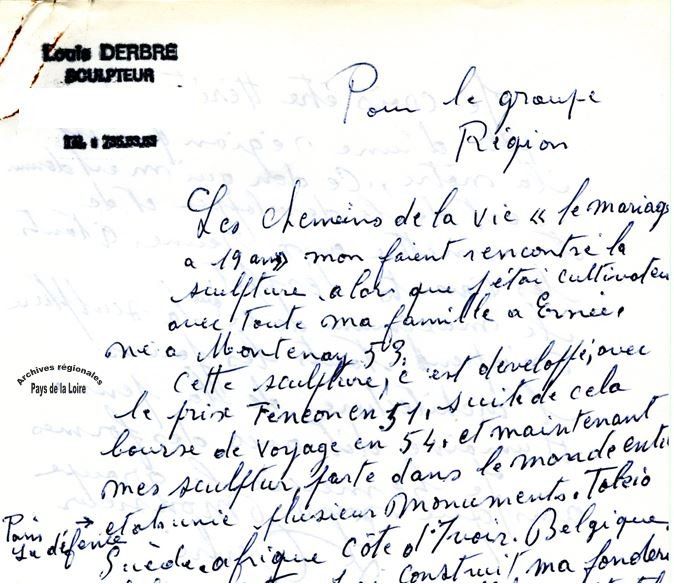 Louis DERBRÉ
SCULPTEUR
TÉL : 735.53.53
Pour le groupe
Région
Les chemeins de la vie « le mariage
a 19 ans » mon faient rencontré la
sculpture alors que j'étai cultivateu
avec toute ma famille a Ernée.
né a Montenay 53.
Cette sculpture, c'est développé, avec
le prix Fénéon en 51, suite de cela
bourse de voyage en 54. et maintenant
mes sculptur parte dans le monde enti
Archives régionales
Pays de la Loire
Paris
La défence
→ etats unie plusieur Monuments. Tokio
Suède. afrique côte d'Ivoir. Belgique.
construit ma fonderi